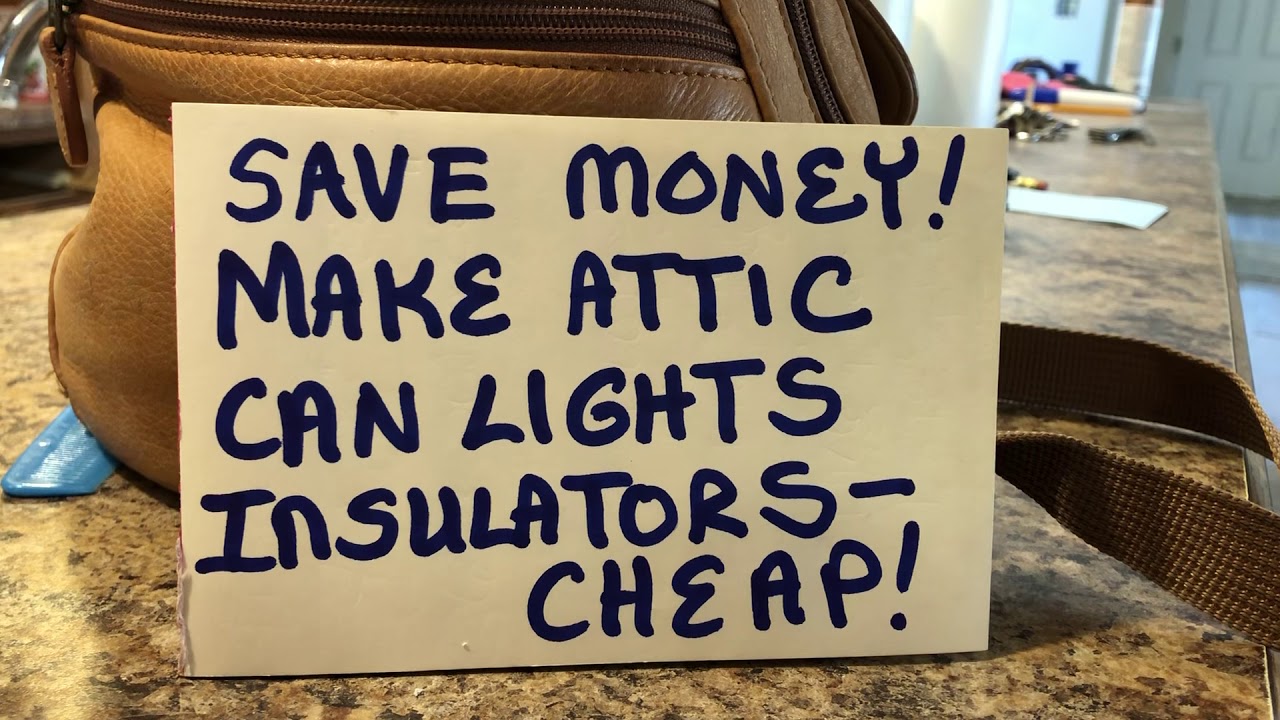 SAVE MONEY!
MAKE ATTIC
CAN LIGHTS
INSULATORS-
CHEAP!